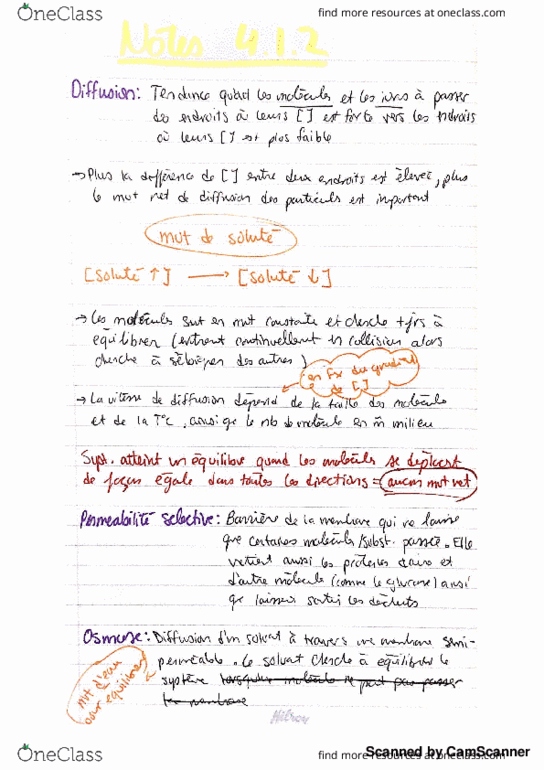 OneClass
find more resources at oneclass.com
Notes 4.1.2
Diffusion: Tendance qu'ont les molécules et les ions à passer
des endroits où leurs [ ] est forte vers les endroits
où leurs [ ] est plus faible
→ Plus la différence de [ ] entre deux endroits est élevée, plus
le mvt net de diffusion des particules est important
mvt de soluté
[soluté ↑] → [soluté ↓]
→ Les molécules sont en mvt constante et cherche tjrs à
équilibrer (entrent continuellement en collision alors
cherche à des autres)
en fx du gradient
de [ ]
→ La vitesse de diffusion dépend de la taille des molécule
et de la T°C, ainsi qe le nb de molécule en m̂ milieu
Syst. atteint un équilibre quand les molécules se déplacent
de façon égale dans toutes les directions = aucun mvt net
Perméabilité sélective: Barrière de la membrane qui ne laisse
que certaines molécules/subst. passée. Elle
retient aussi les protéines dans et
d'autre molécule (comme le glucose) ainsi
qe laisser sortir les déchets
Osmose: Diffusion d'un solvant à travers une membrane semi-
perméable. Le solvant cherche à équilibrer le
système lorsqu'une molécule ne peut pas passer
la membrane
mvt d'eau
pour équilibrer
Hilroy
OneClass
find more resources at oneclass.com
Scanned by CamScanner